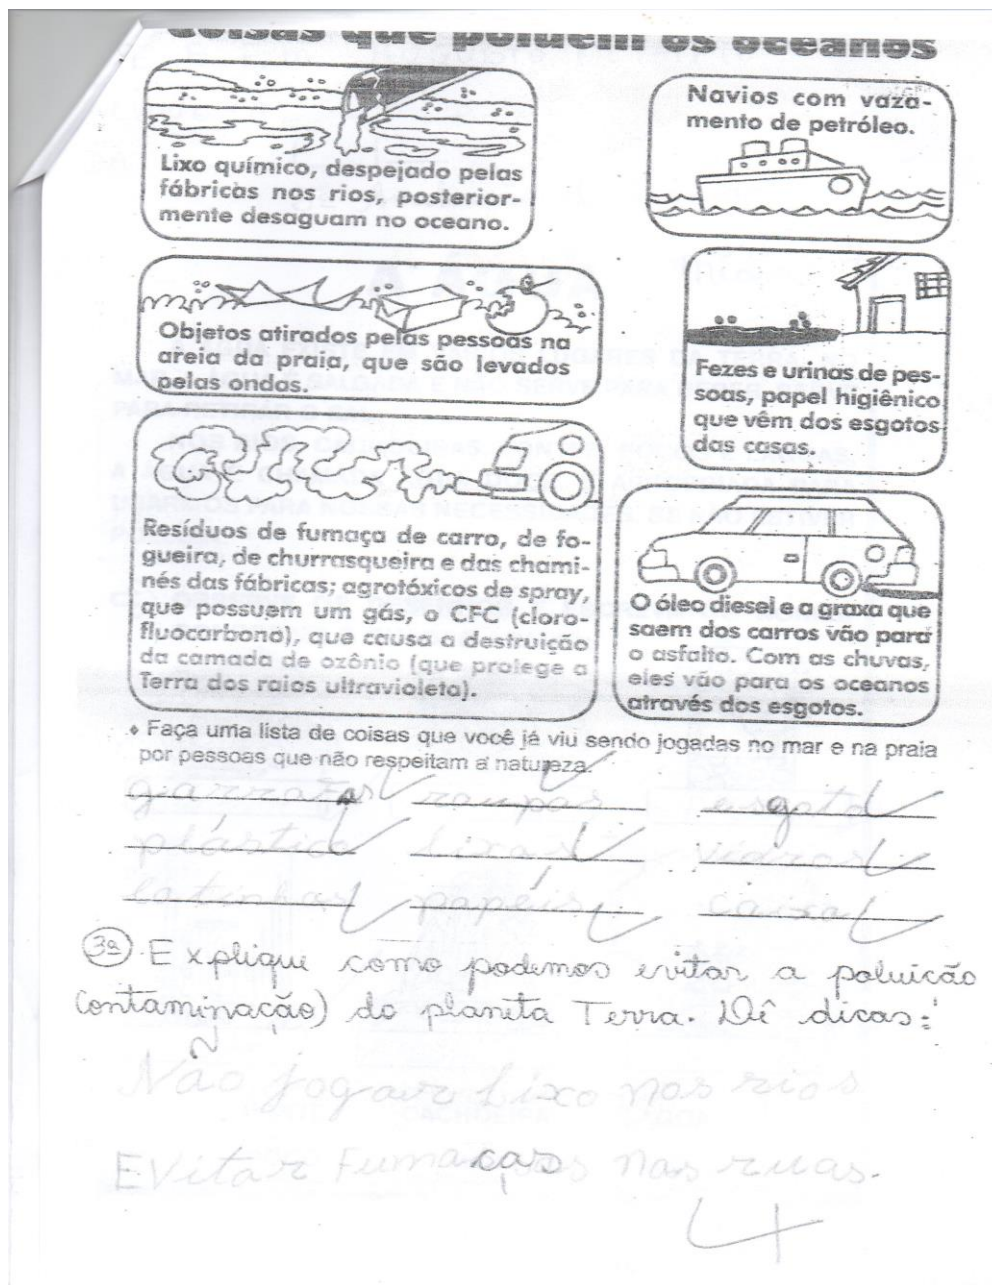 Coisas que poluem os oceanos
Lixo químico, despejado pelas
fábricas nos rios, posterior-
mente desaguam no oceano.
Navios com vaza-
mento de petróleo.
Objetos atirados pelas pessoas na
areia da praia, que são levados
pelas ondas.
Fezes e urinas de pes-
soas, papel higiênico
que vêm dos esgotos
das casas.
Resíduos de fumaça de carro, de fo-
gueira, de churrasqueira e das chami-
nés das fábricas; agrotóxicos de spray,
que possuem um gás, o CFC (cloro-
fluocarbono), que causa a destruição
da camada de ozônio (que protege a
Terra dos raios ultravioleta).
O óleo diesel e a graxa que
saem dos carros vão para
o asfalto. Com as chuvas,
eles vão para os oceanos
através dos esgotos.
♦ Faça uma lista de coisas que você já viu sendo jogadas no mar e na praia
por pessoas que não respeitam a natureza.
garrafas roupas esgoto
plástico lixas vidros
latinhas papéis caixa
3ª. Explique como podemos evitar a poluição
(contaminação) do planeta Terra. Dê dicas:
Não jogar lixo nos rios
Evitar Fumaças nas ruas.